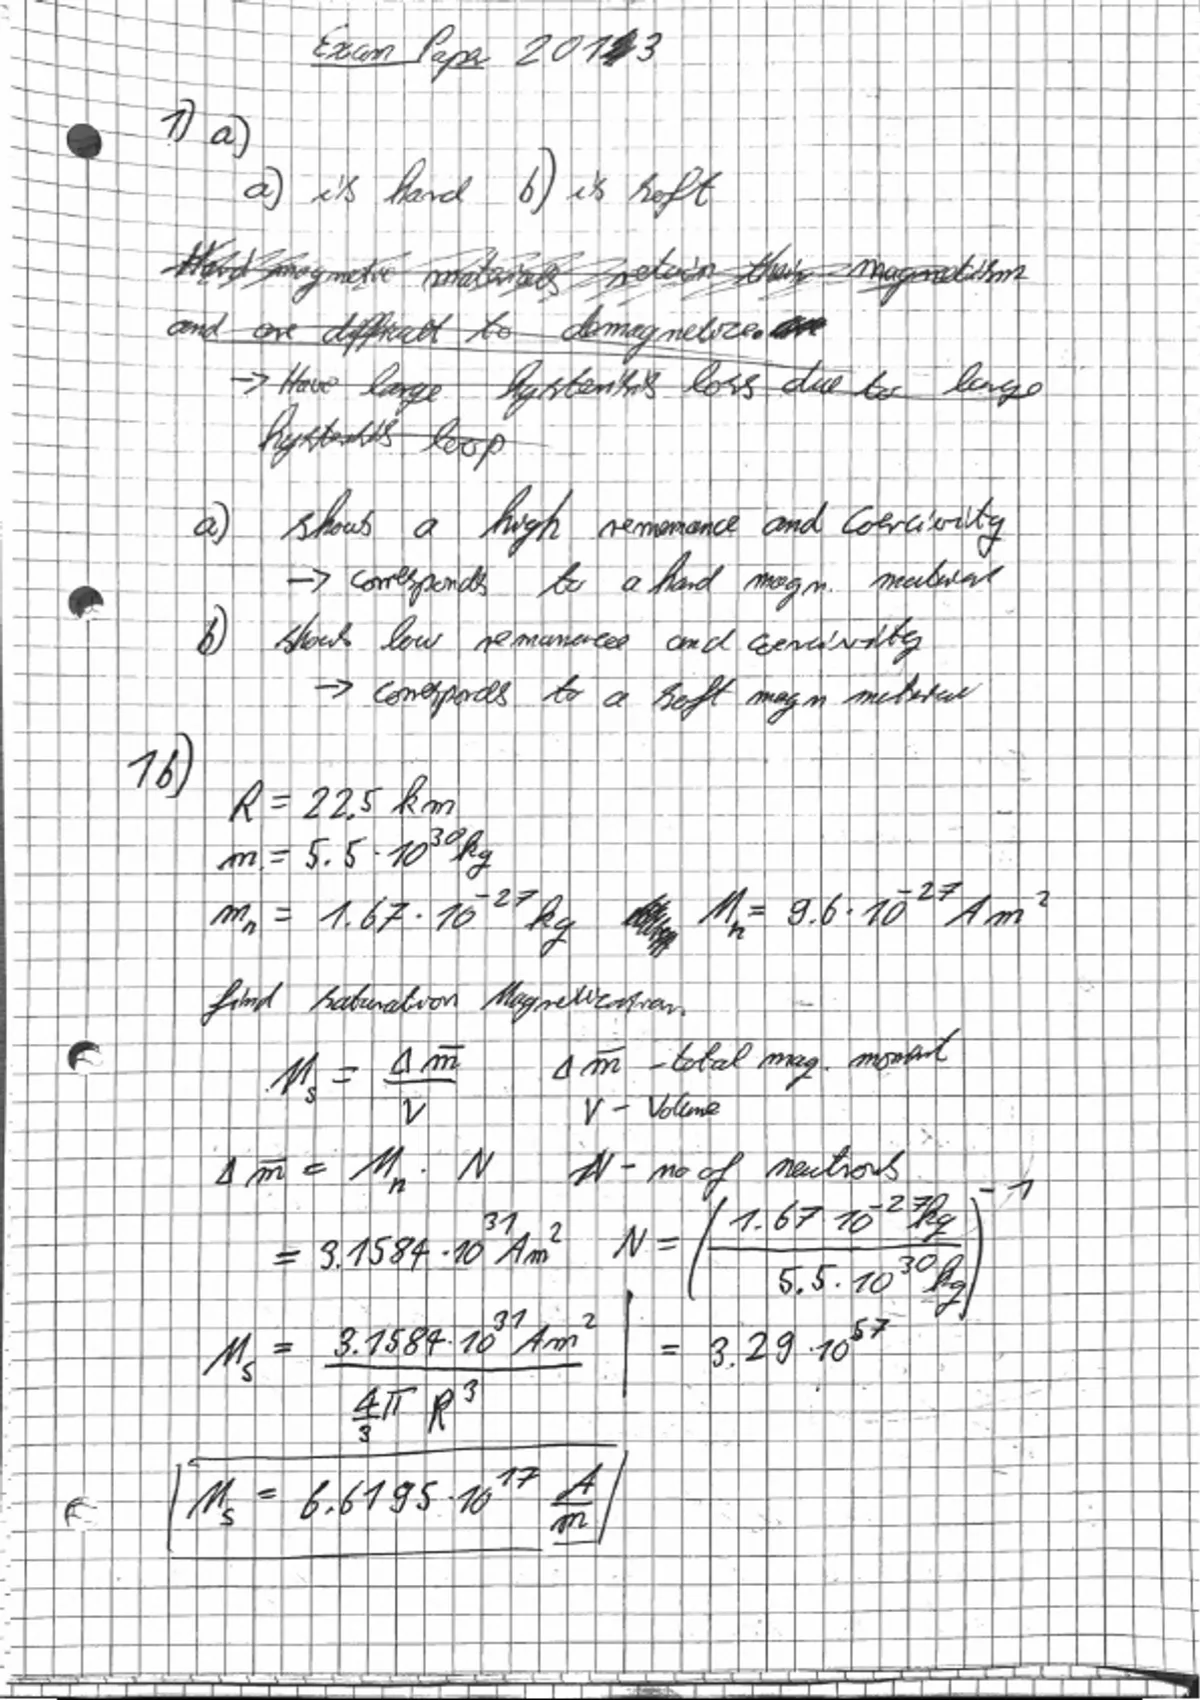 Exam Paper 2013
1) a)
a) is hard b) is soft
Hard magnetic materials retain their magnetism
and are difficult to demagnetize.
→ Have large hysteresis loss due to large
hysteresis loop
a) shows a high remenance and Coercivity
→ corresponds to a hard magn. material
b) shows low remanence and coercivity
→ corresponds to a soft magn material
1b)
R = 22.5 km
m = 5.5 · 10^30 kg
m_n = 1.67 · 10^-27 kg M_n = 9.6 · 10^-27 A m^2
find saturation Magnetization.
M_s = Δm̄ / V Δm̄ - total mag. moment
V - Volume
Δm̄ = M_n · N N - no of neutrons
= 3.1584 · 10^31 Am^2 N = (1.67 · 10^-27 kg / 5.5 · 10^30 kg)^-1
M_s = 3.1584 · 10^31 Am^2 / 4/3 π R^3 | = 3.29 · 10^57
M_s = 6.6195 · 10^17 A/m